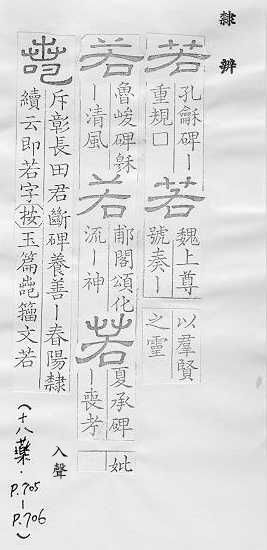 隸辨
若 孔龢碑ー
重規囗
若 魏上尊
號奏ー
以羣賢
之靈
若 魯峻碑穌
ー清風
若 郙閣頌化
流ー神
若 夏承碑
ー喪孝
妣
斥彰長田君斷碑養善ー春陽隸
續云即若字按玉篇籀文若
入聲
(十八藥.
P.705
-
P.706
)